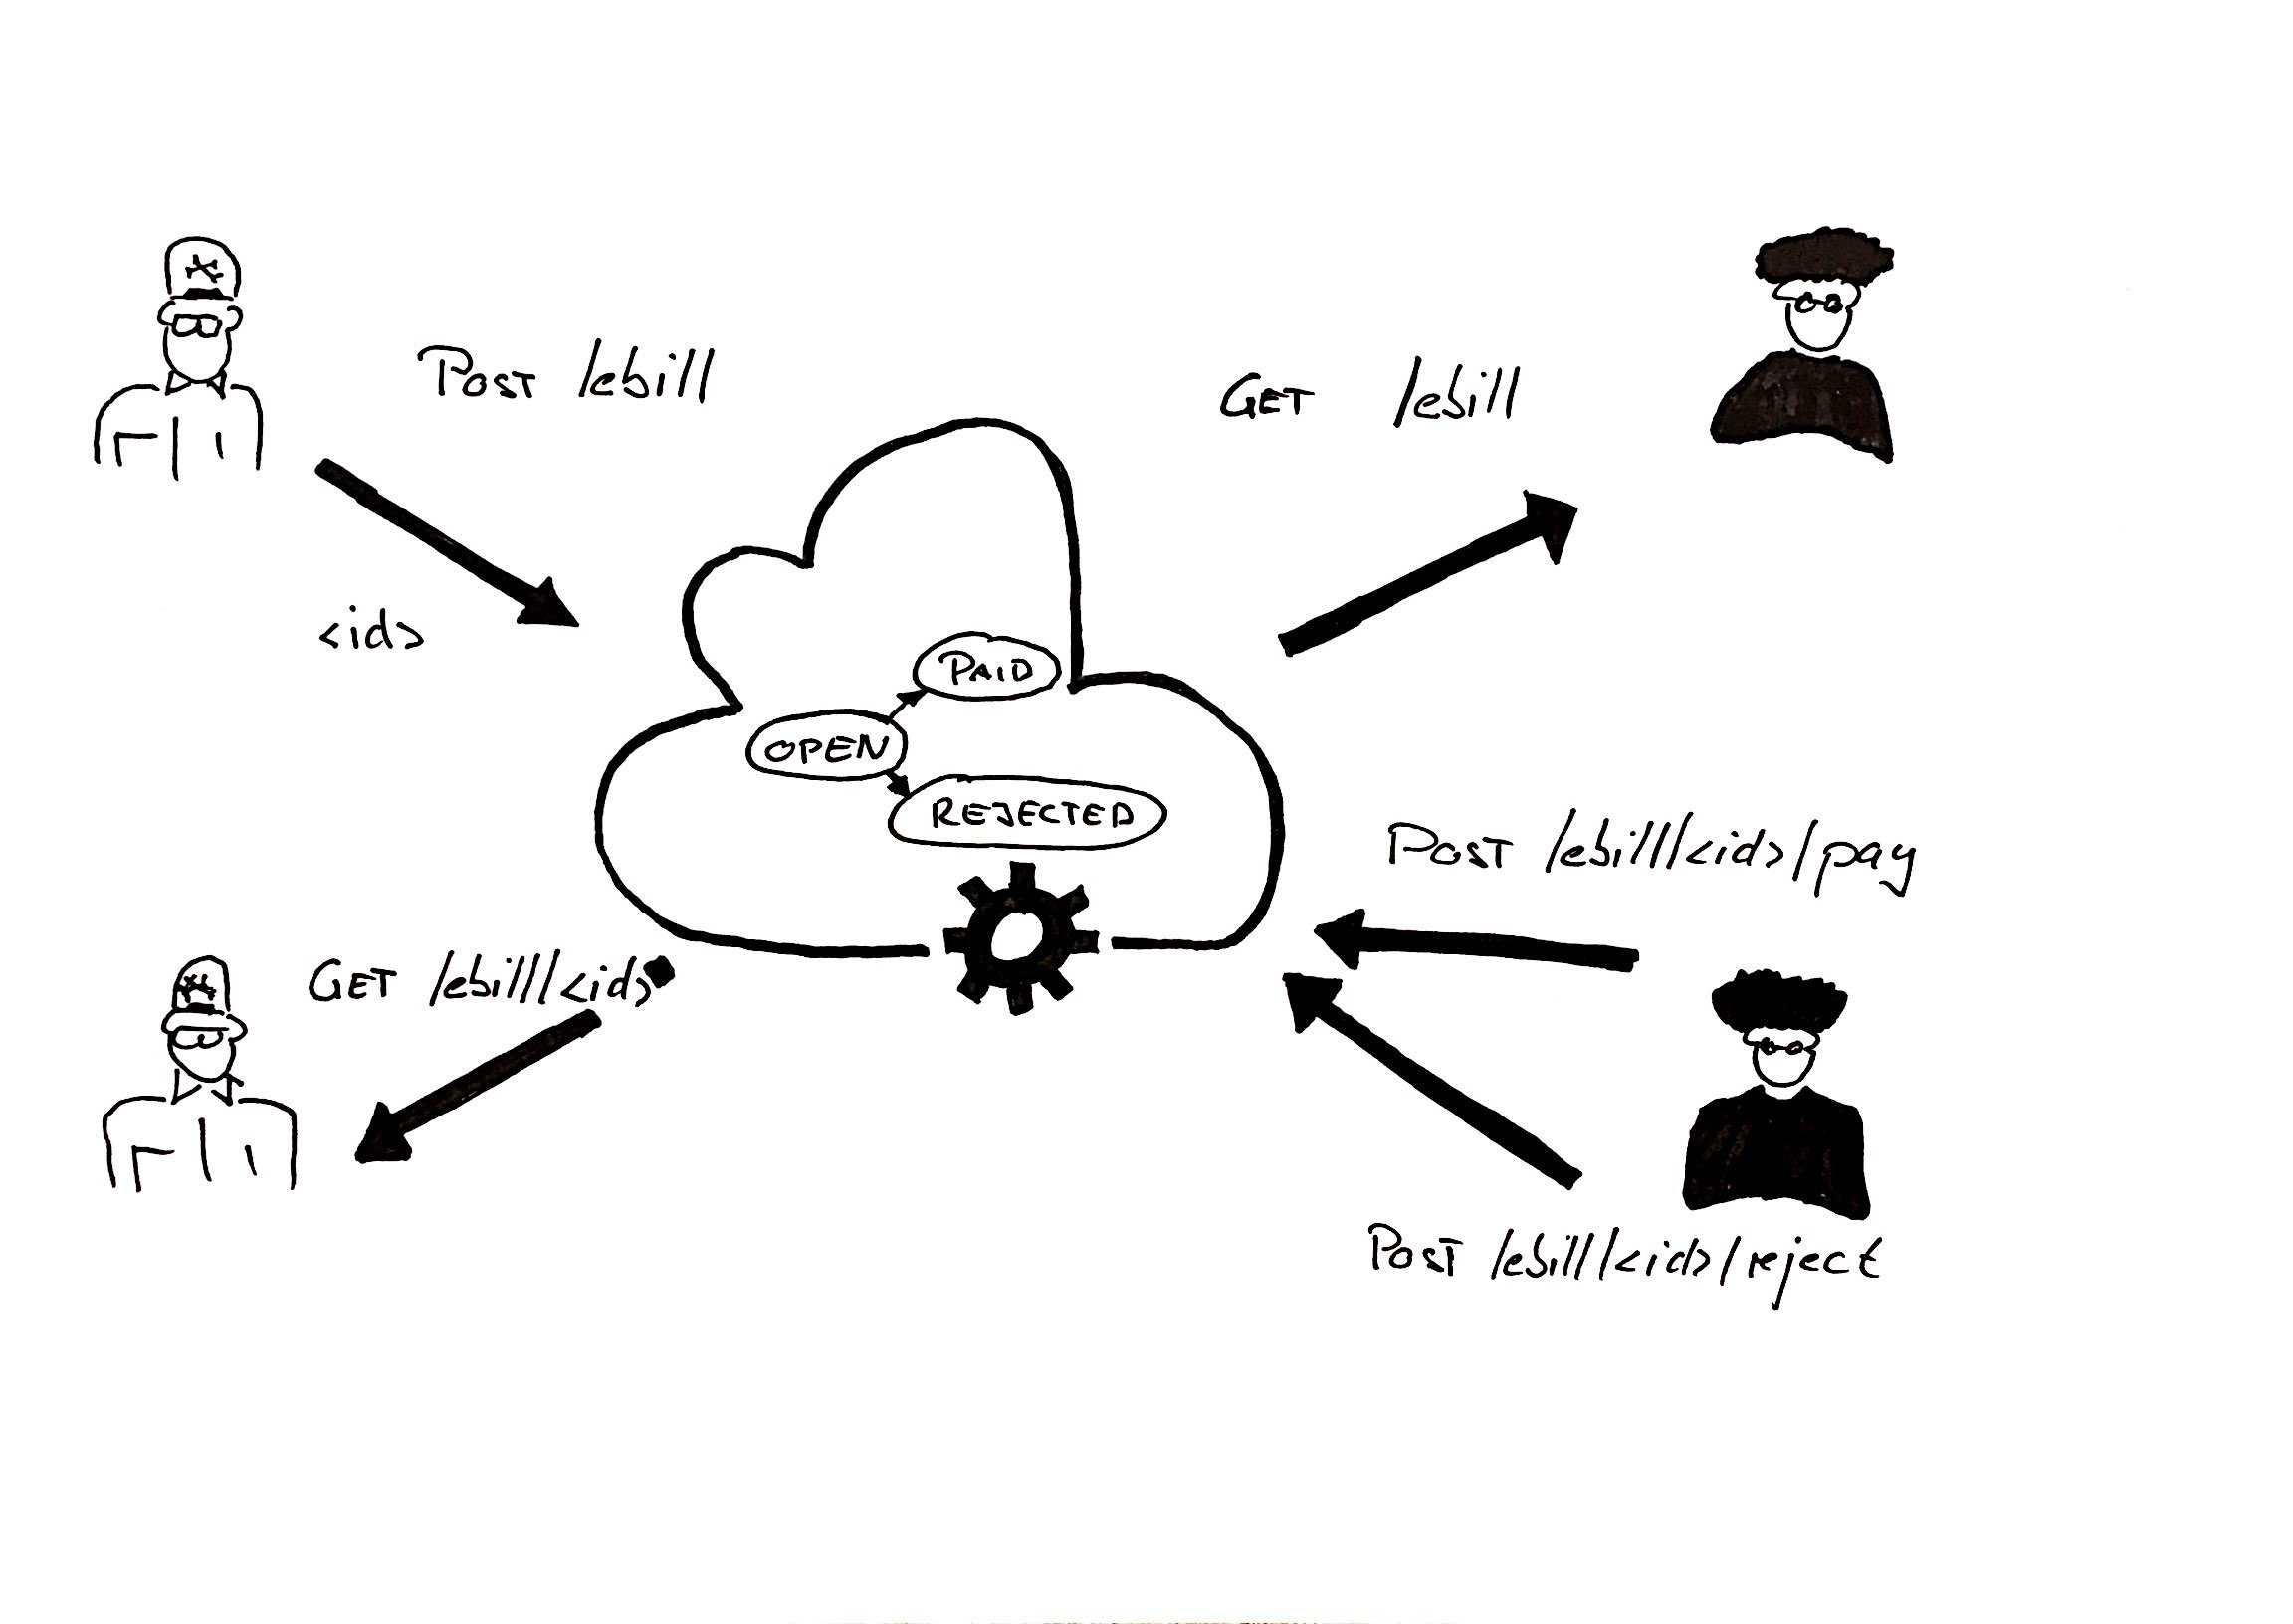 POST /ebill
GET /ebill
<id>
PAID
OPEN
REJECTED
POST /ebill/<id>/pay
GET /ebill/<id>
POST /ebill/<id>/reject